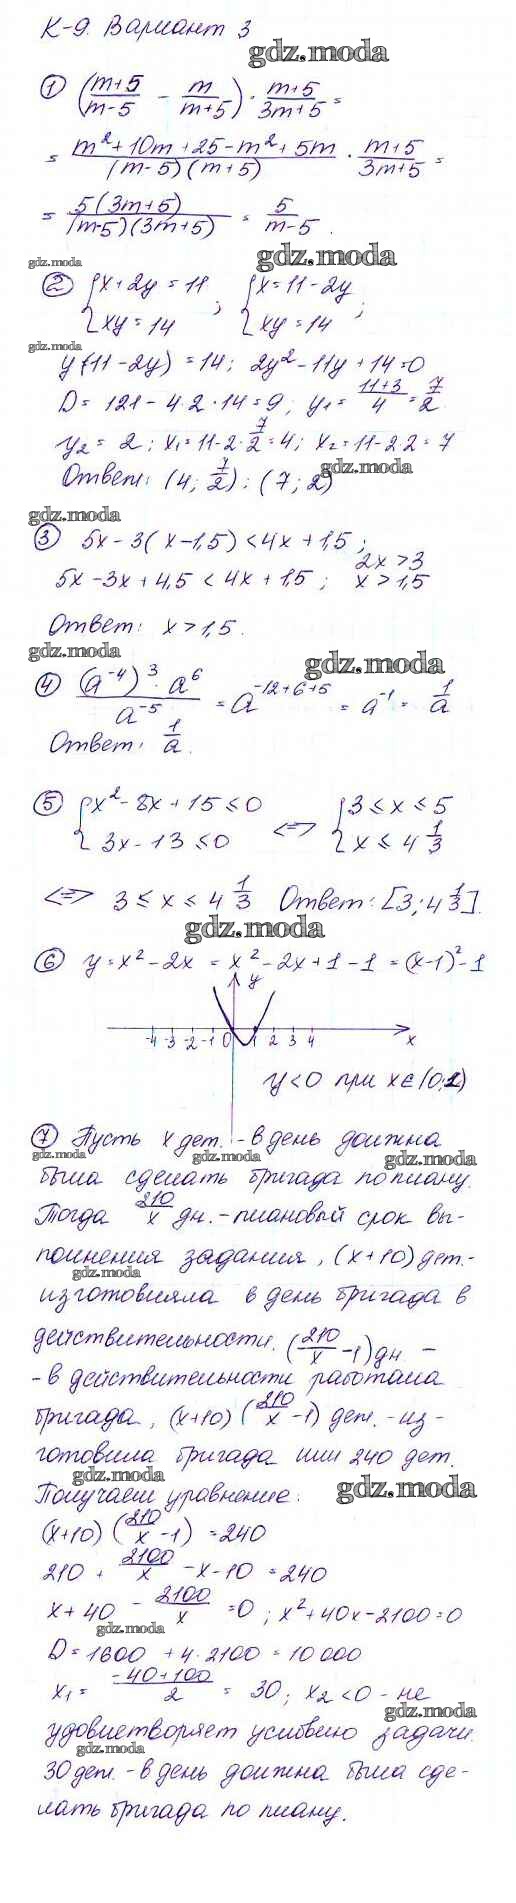 К-9. Вариант 3
gdz.moda
① ((m+5)/(m-5) - m/(m+5)) · (m+5)/(3m+5) =
= (m²+10m+25-m²+5m)/((m-5)(m+5)) · (m+5)/(3m+5) =
= 5(3m+5)/((m-5)(3m+5)) = 5/(m-5).
gdz.moda
gdz.moda
② {x+2y=11 xy=14 ; {x=11-2y xy=14 ;
gdz.moda
y(11-2y)=14; 2y²-11y+14=0
D=121-4·2·14=9; y₁=(11+3)/4=7/2
y₂=2; x₁=11-2·7/2=4; x₂=11-2·2=7
Ответ: (4; 7/2); (7; 2)
gdz.moda
③ 5x-3(x-1,5)<4x+1,5;
2x>3
5x-3x+4,5<4x+1,5; x>1,5
Ответ: x>1,5.
gdz.moda
gdz.moda
④ (a⁻⁴)³·a⁶/a⁻⁵ = a⁻¹²⁺⁶⁺⁵ = a⁻¹ = 1/a
Ответ: 1/a.
⑤ {x²-8x+15≤0 3x-13≤0 <=> {3≤x≤5 x≤4 1/3
<=> 3≤x≤4 1/3 Ответ: [3; 4 1/3].
gdz.moda
⑥ y=x²-2x=x²-2x+1-1=(x-1)²-1
y
-4 -3 -2 -1 0 1 2 3 4 x
y<0 при x∈(0;2)
⑦ Пусть x дет. - в день должна
gdz.moda gdz.moda gdz.moda
была сделать бригада по плану.
Тогда 210/x дн. - плановый срок вы-
полнения задания, (x+10) дет.-
gdz.moda
изготовляла в день бригада в
действительности. (210/x -1) дн -
- в действительности работала
бригада, (x+10)(210/x -1) дет. - из-
готовила бригада или 240 дет.
gdz.moda
gdz.moda
Получаем уравнение:
(x+10)(210/x -1)=240
210 + 2100/x -x-10=240
x+40 - 2100/x =0; x²+40x-2100=0
gdz.moda
D=1600+4·2100=10000
x₁=(-40+100)/2 = 30; x₂<0 - не
удовлетворяет условию задачи.
gdz.moda
30 дет. - в день должна была сде-
лать бригада по плану.